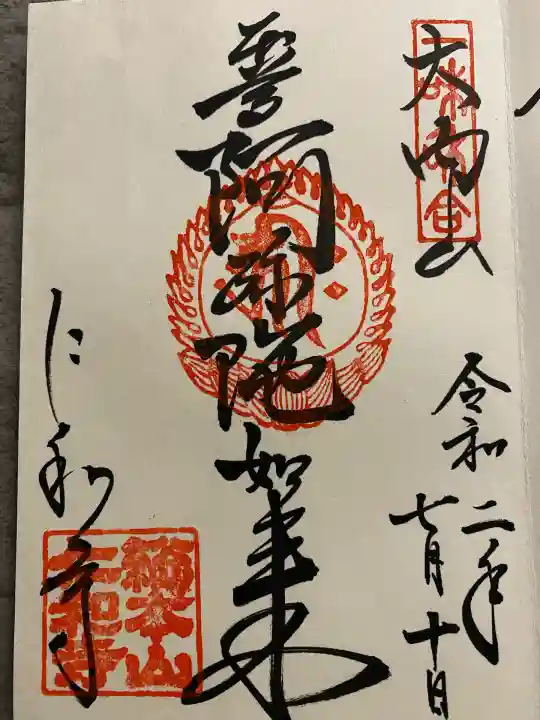 大内山
令和二年
七月十日
阿弥陀如来
仁和寺
総本山
仁和寺